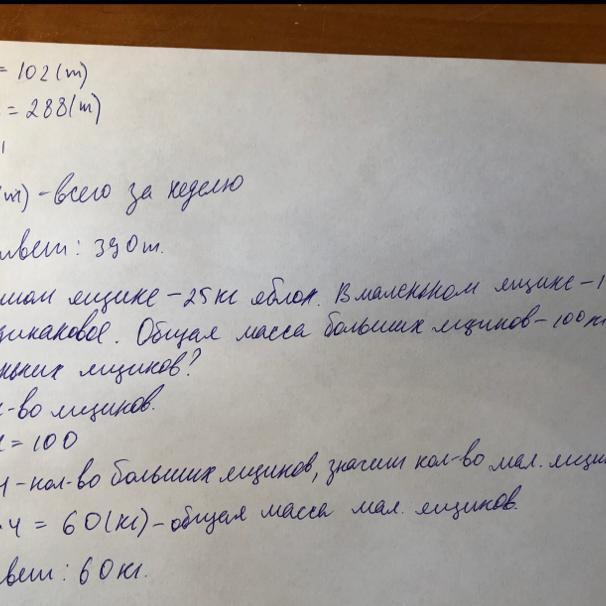 = 102(т)
= 288(т)
(т) - всего за неделю
твет: 390т.
шом ящике - 25 кг яблок. В маленьком ящике - 1
динаковое. Общая масса больших ящиков - 100 кг
ньких ящиков?
-во ящиков.
= 100
4 - кол-во больших ящиков, значит кол-во мал. ящи
· 4 = 60(кг) - общая масса мал. ящиков.
вет: 60кг.